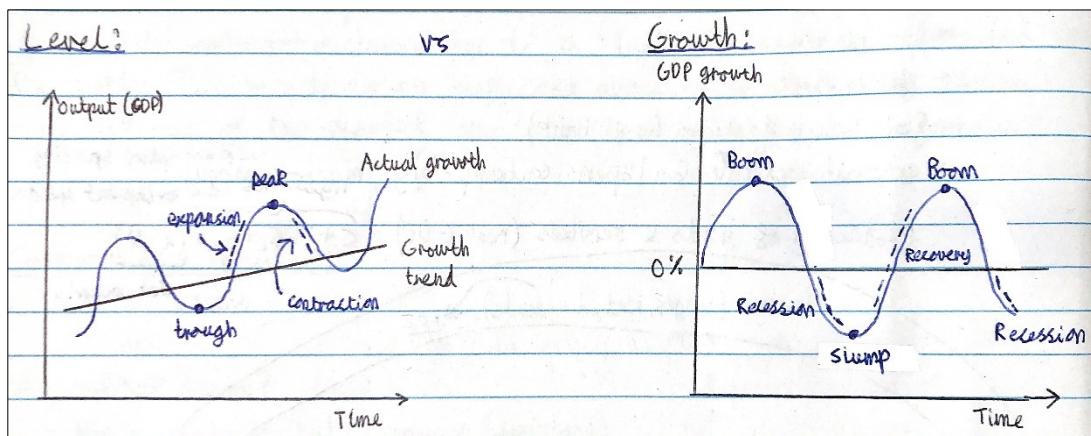 Level:
vs
Growth:
Output (GDP)
peak
Actual growth
expansion
Growth
trend
contraction
trough
Time
GDP growth
Boom
Boom
0%
Recovery
Recession
Slump
Recession
Time